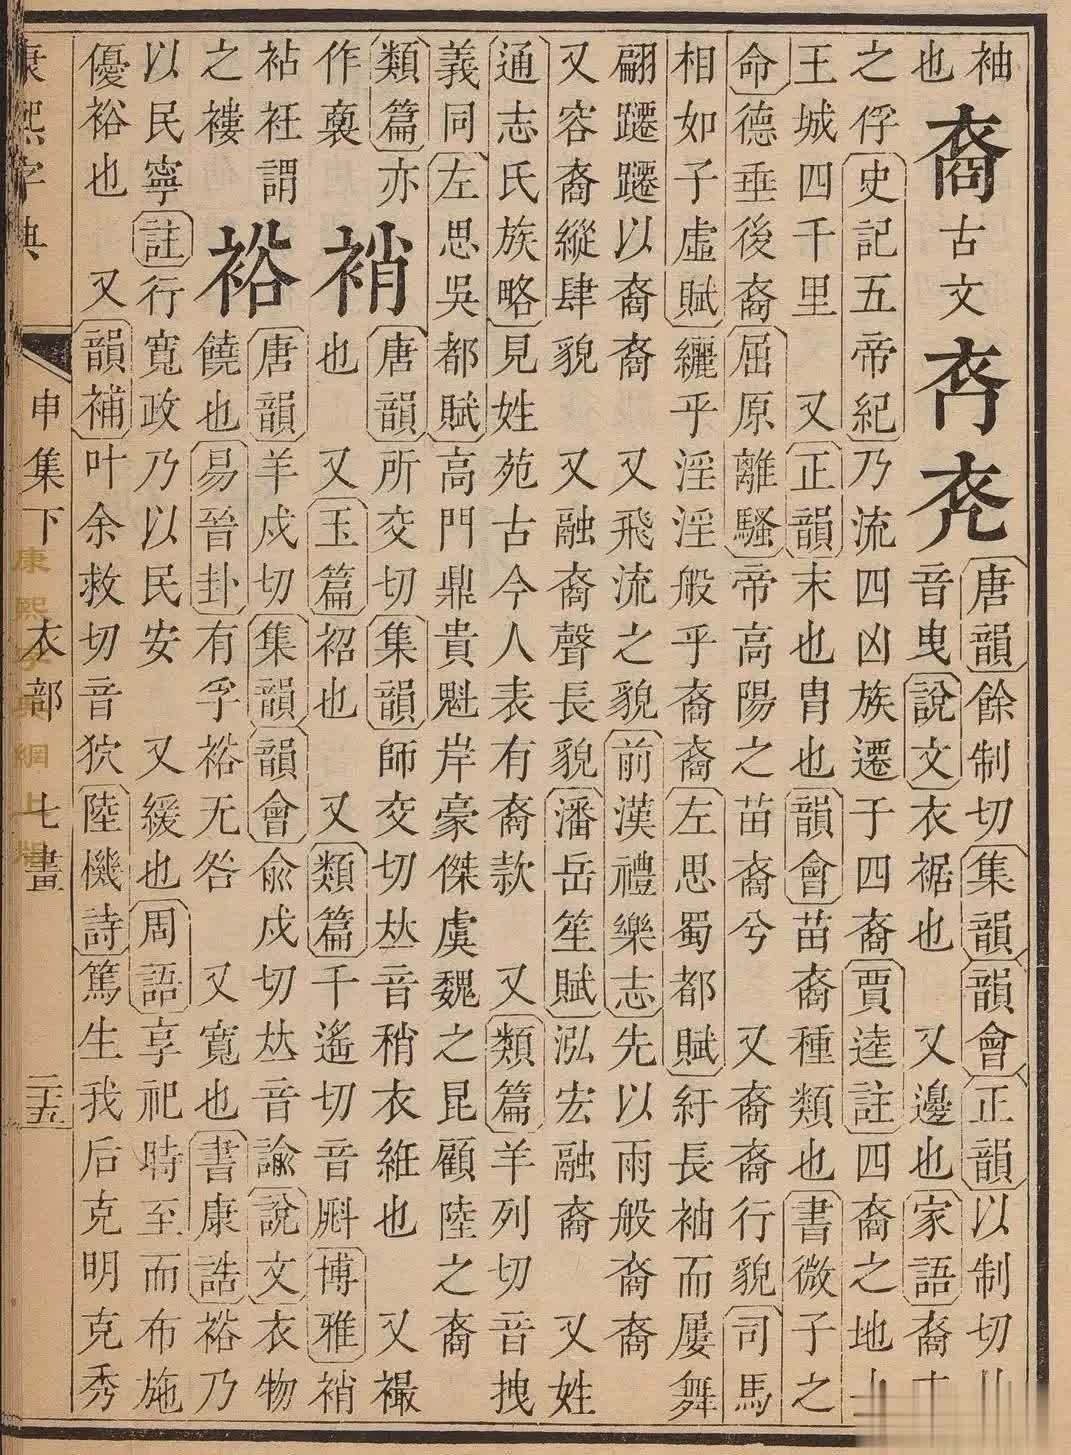 袖
也
裔古文
唐韻餘制切集韻韻會正韻以制切
音曳說文衣裾也 又邊也家語裔
之俘史記五帝紀乃流四凶族遷于四裔賈逵註四裔之地
王城四千里 又正韻末也胄也韻會苗裔種類也書微子之
命德垂後裔屈原離騷帝高陽之苗裔兮 又裔裔行貌司馬
相如子虛賦纚乎淫淫般乎裔裔左思蜀都賦紆長袖而屢舞
翩躚躚以裔裔 又飛流之貌前漢禮樂志先以雨般裔裔
又容裔縱肆貌 又融裔聲長貌潘岳笙賦泓宏融裔 又姓
通志氏族略見姓苑古今人表有裔款 又類篇羊列切音拽
義同左思吳都賦高門鼎貴魁岸豪傑虞魏之昆顧陸之裔
類篇亦
作裏
䘯
唐韻所交切集韻師交切𠀤音稍衣袵也 又襊
也 又玉篇袑也 又類篇千遙切音㪺博雅䘯
袩衽謂
之褸
裕
唐韻羊戍切集韻韻會兪戍切𠀤音諭說文衣物
饒也易晉卦有孚裕无咎 又寬也書康誥裕乃
以民寧註行寬政乃以民安 又緩也周語享祀時至而布施
優裕也 又韻補叶余救切音狖陸機詩篤生我后克明克秀
康熙字典 申集下 衣部 七畫 二五
康熙字典網上版